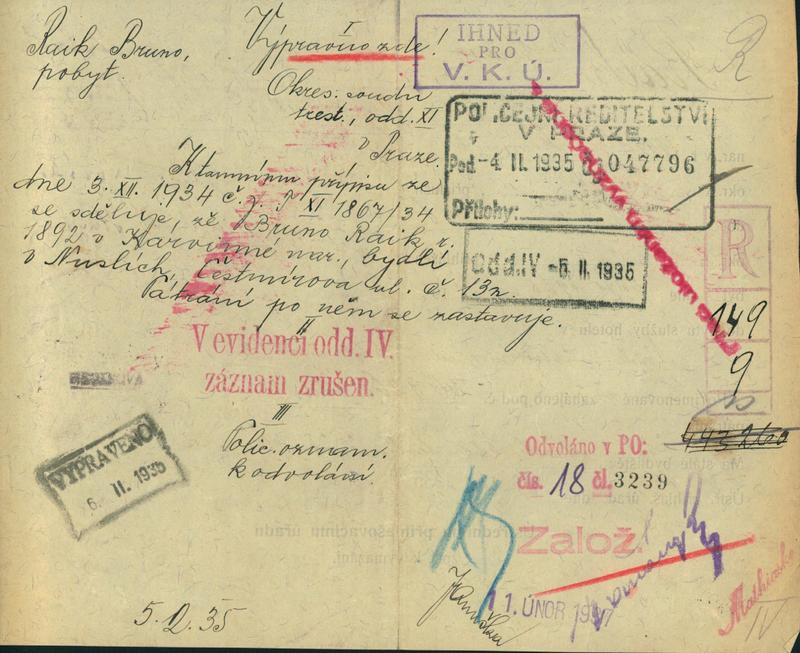 Raik Bruno,
pobyt.
I
Výpraviti zde!
IHNED
PRO
V. K. Ú.
R
Okres. soudu
trest., odd. XI
v Praze.
POLICEJNÍ ŘEDITELSTVÍ
V PRAZE.
Pod. -4. II. 1935 047796
Přílohy:
K tamnímu přípisu ze
dne 3. XII. 1934 č. j. T XI 1867/34
se sděluje, že Bruno Raik r.
1892 v Karvinné nar., bydlí
v Nuslích, Čestmírova ul. č. 13n.
Pátrání po něm se zastavuje.
Odd. IV -5. II. 1935
R
149
9
II
V evidenci odd. IV.
záznam zrušen.
III
Polic. oznam.
k odvolání.
VYPRAVENO
6. II. 1935
Odvoláno v PO:
čís. 18 čl. 3239
Založ.
11. ÚNOR 1937
5. 2. 35
IV